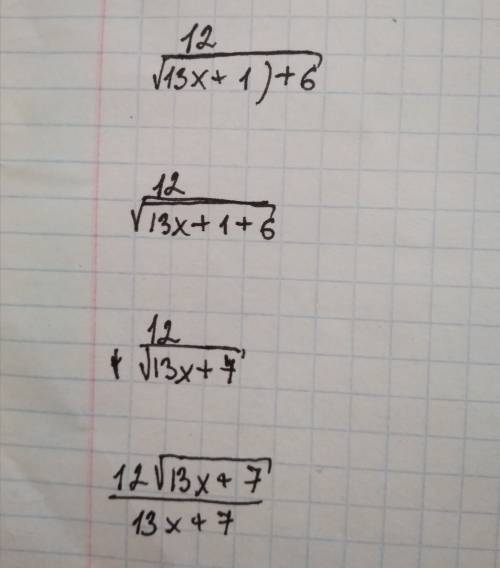 12
√13x + 1) + 6
12
√13x + 1 + 6
12
√13x + 7
12√13x + 7
13x + 7